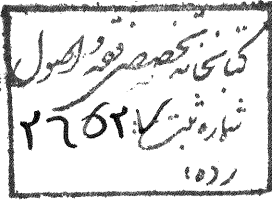 کتابخانه تخصصی فقه و اصول
شماره ثبت: ۲۶۵۲۷
رده: